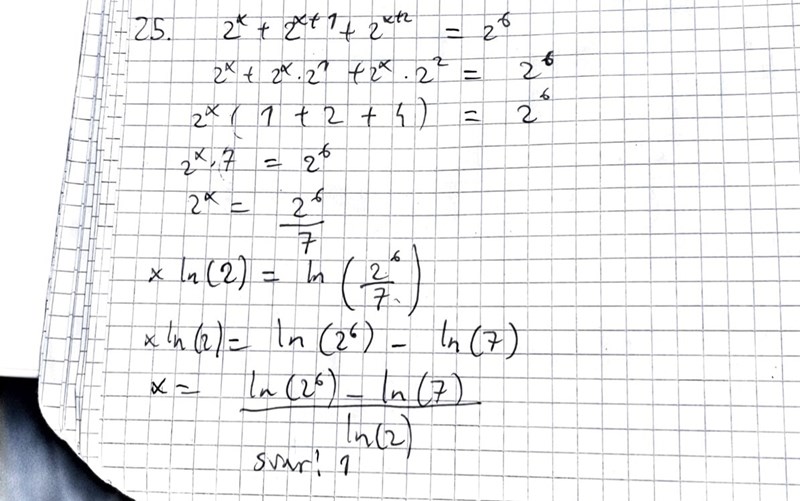 25. 2^x + 2^{x+1} + 2^{x+2} = 2^6
2^x + 2^x · 2^1 + 2^x · 2^2 = 2^6
2^x ( 1 + 2 + 4 ) = 2^6
2^x · 7 = 2^6
2^x = \frac{2^6}{7}
x ln(2) = ln \left( \frac{2^6}{7} \right)
x ln(2) = ln(2^6) - ln(7)
x = \frac{ln(2^6) - ln(7)}{ln(2)}
svar! 1